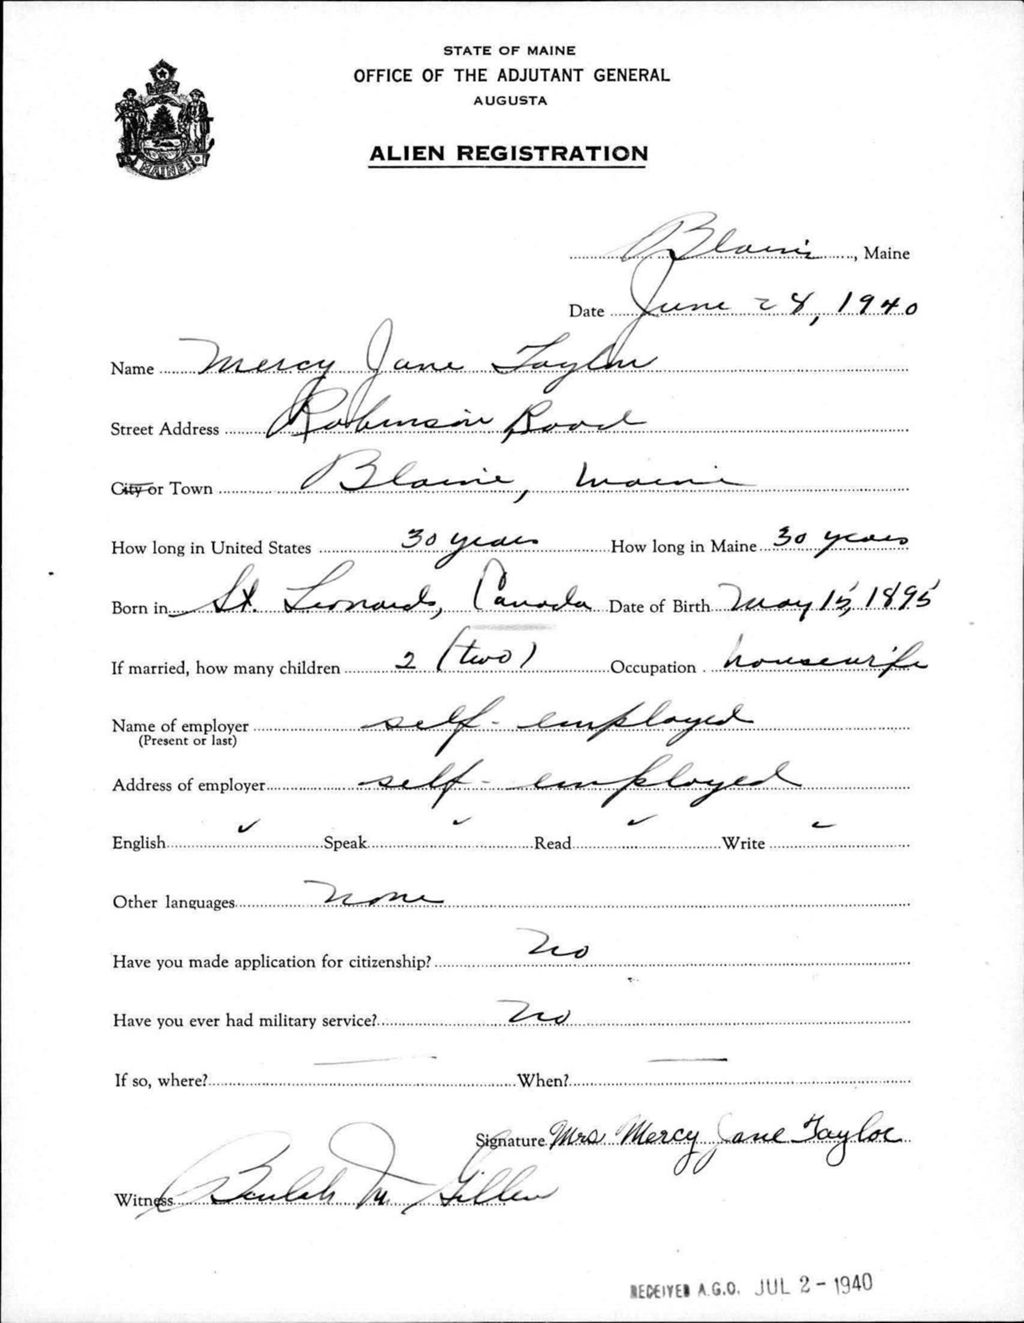 STATE OF MAINE
OFFICE OF THE ADJUTANT GENERAL
AUGUSTA
ALIEN REGISTRATION
MAINE
Blaine, Maine
Date June 28, 1940
Name Mercy Jane Taylor
Street Address Robinson Road
City or Town Blaine, Maine
How long in United States 30 years How long in Maine 30 years
Born in St. Leonards, Canada Date of Birth May 15, 1895
If married, how many children 2 (two) Occupation housewife
Name of employer self-employed
(Present or last)
Address of employer self-employed
English ✓ Speak ✓ Read ✓ Write ✓
Other languages none
Have you made application for citizenship? no
Have you ever had military service? no
If so, where? — When? —
Signature Mrs Mercy Jane Taylor
Witness Beulah M Gillen
RECEIVED A.G.O. JUL 2 - 1940